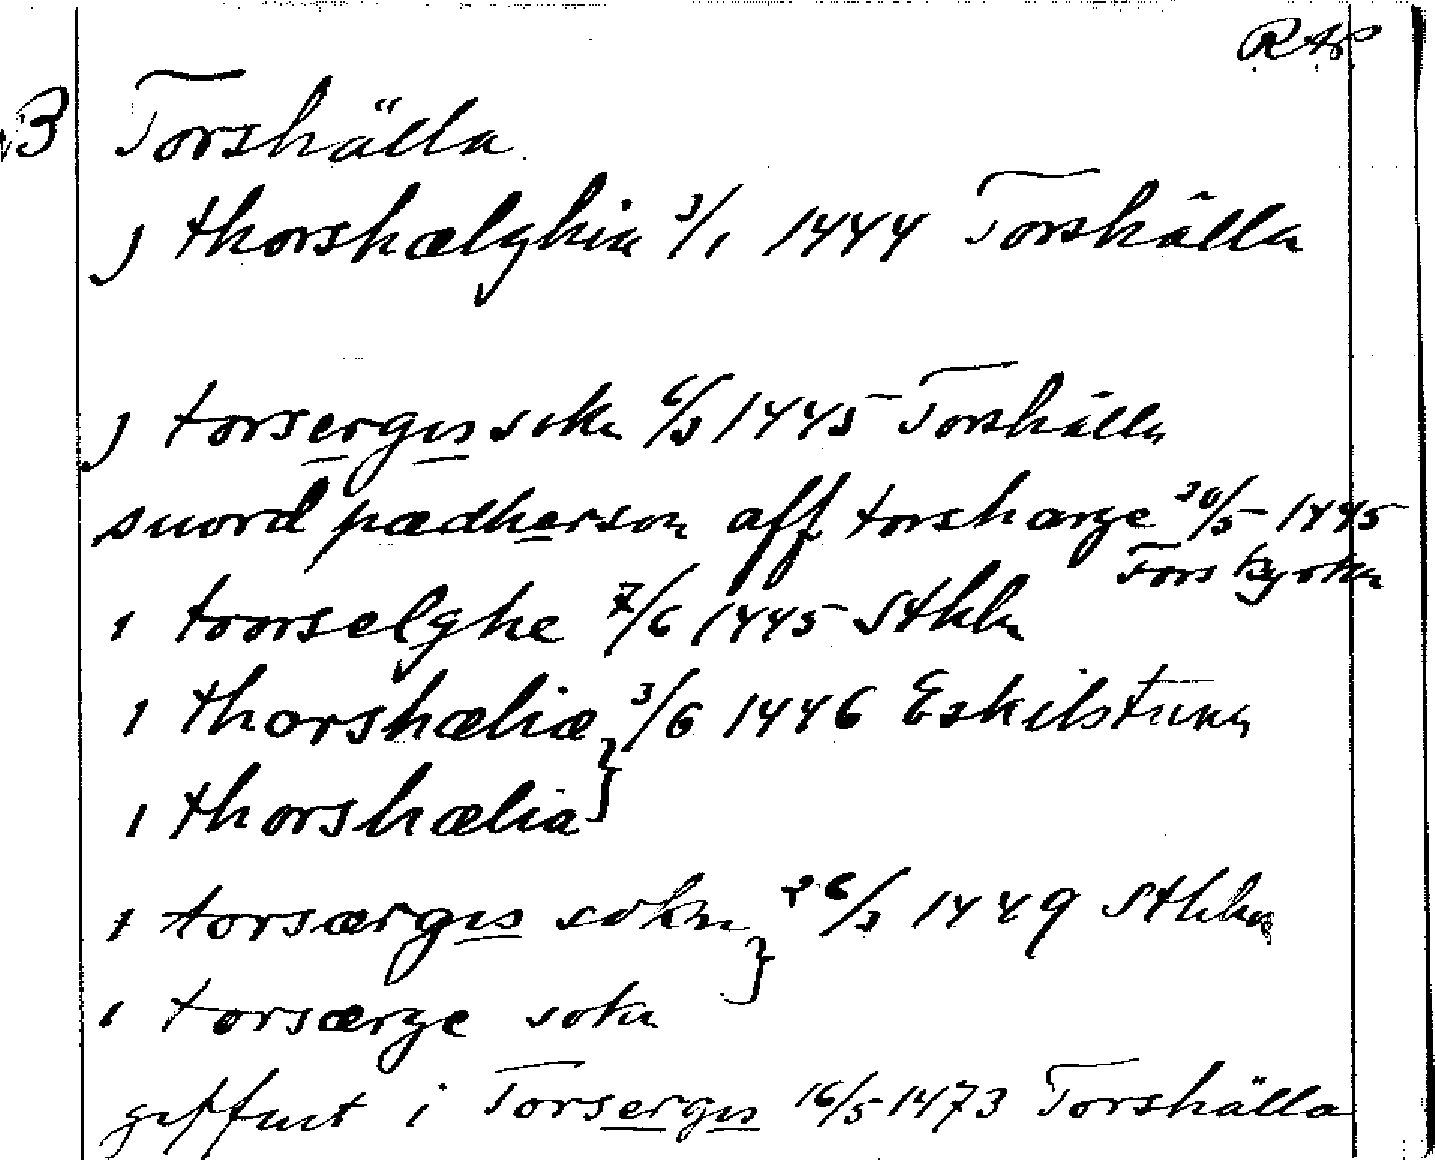 RAP
B Torshälla
j thorshælghia 3/1 1444 Torshälla
j torsergis sokn 6/3 1445 Torshälla
suord pædherson aff torsharge 30/5 1445
Fors kyrka
i toorselghe 7/6 1445 Sthlm
i thorshæliæ 3/6 1446 Eskilstuna
i thorshælia
i torsærgis sokn 26/3 1449 Sthlm
i torsærge sokn
giffuit i Torsergis 16/5 1473 Torshälla